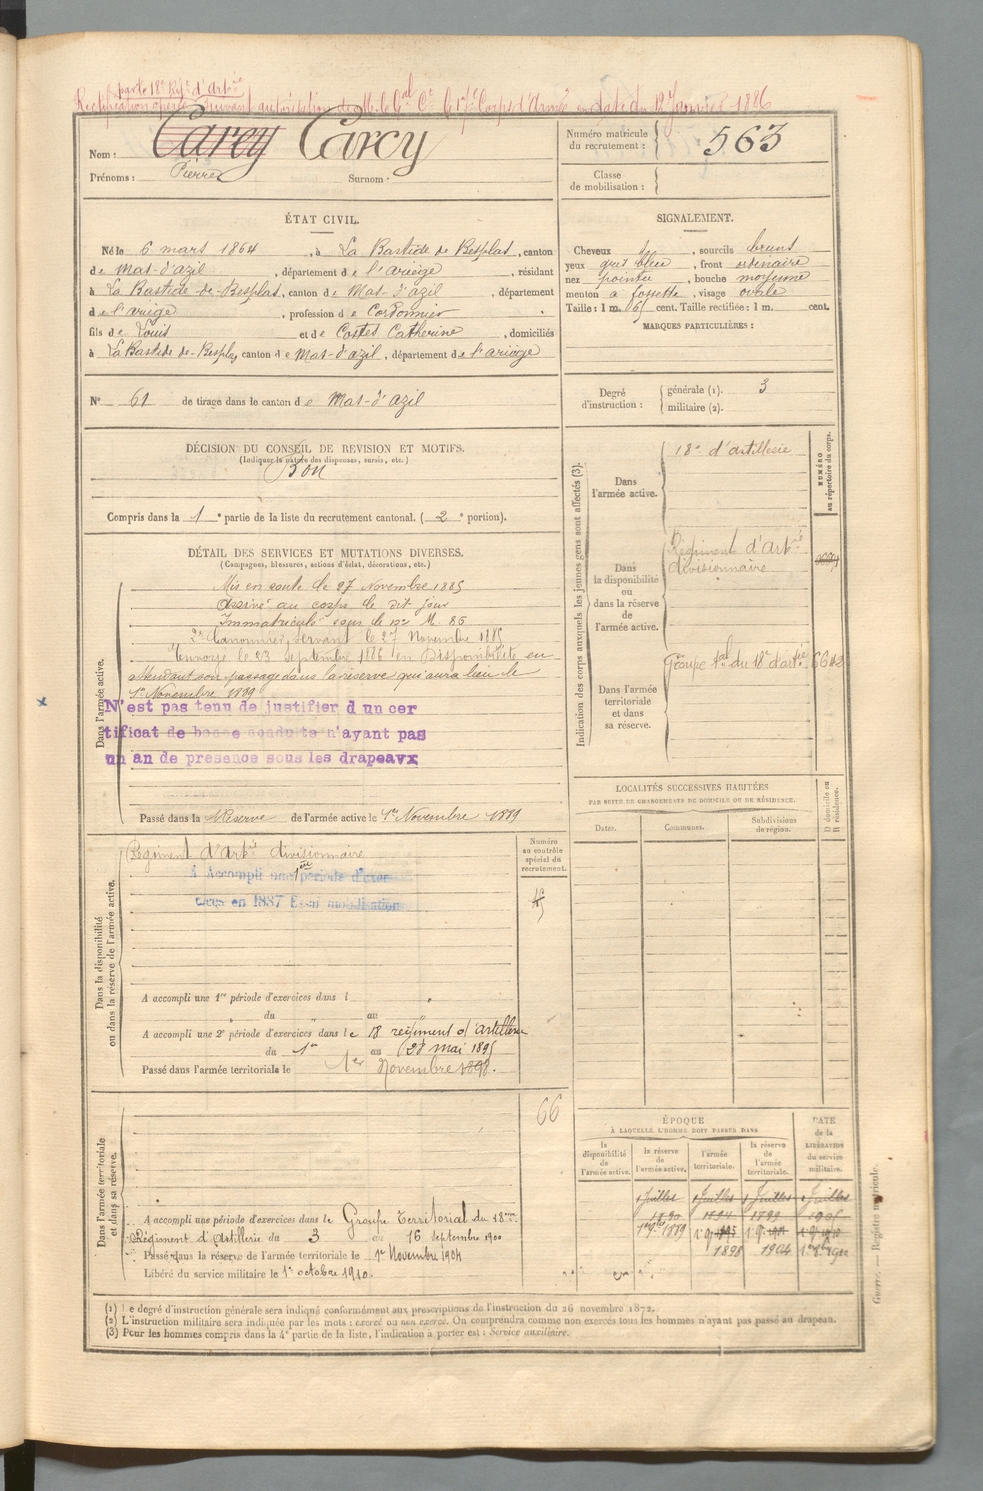 parte 18e Régt d'Artie
Rectification opérée suivant autorisation de M. le Gal Ct le 17e Corps d'Armée en date du 12 Janvier 1886
Nom : Carey Carcy
Prénoms : Pierre Surnom :
Numéro matricule du recrutement : 563
Classe de mobilisation :
ÉTAT CIVIL.
Né le 6 mars 1864, à La Bastide de Besplas, canton
de Mas-d'azil, département de l'ariège, résidant
à La Bastide-de-Besplas, canton de Mas-d'azil, département
de l'ariège, profession de Cordonnier
fils de Louis et de Costes Catherine, domiciliés
à La Bastide de-Besplas canton de Mas-d'azil, département de l'ariège
SIGNALEMENT.
Cheveux , sourcils bruns
yeux gris bleu, front ordinaire
nez pointu, bouche moyenne
menton à fossette, visage ovale
Taille : 1 m. 65 cent. Taille rectifiée : 1 m. cent.
MARQUES PARTICULIÈRES :
N° 61 de tirage dans le canton de Mas-d'azil
Degré d'instruction : générale (1). 3
militaire (2).
DÉCISION DU CONSEIL DE REVISION ET MOTIFS.
(Indiquer la nature des dispenses, sursis, etc.)
Bon
Compris dans la 1e partie de la liste du recrutement cantonal. (2e portion).
DÉTAIL DES SERVICES ET MUTATIONS DIVERSES.
(Campagnes, blessures, actions d'éclat, décorations, etc.)
Dans l'armée active.
Mis en route le 27 Novembre 1885
arrivé au corps le dit jour
Immatriculé sous le no M. 86
2e Canonnier servant le 27 Novembre 1885
Renvoyé le 23 Septembre 1886 en Disponibilité en
attendant son passage dans la réserve qui aura lieu le
1er Novembre 1889
N'est pas tenu de justifier d un cer
tificat de bonne conduite n'ayant pas
un an de presence sous les drapeaux
Passé dans la Réserve de l'armée active le 1er Novembre 1889
Indication des corps auxquels les jeunes gens sont affectés (3).
NUMÉRO au répertoire du corps.
Dans l'armée active.
18e d'artillerie
Dans la disponibilité ou dans la réserve de l'armée active.
Régiment d'Artie
divisionnaire
Dans l'armée territoriale et dans sa réserve.
Groupe tal du 18e d'artie 6642
LOCALITÉS SUCCESSIVES HABITÉES
PAR SUITE DE CHANGEMENTS DE DOMICILE OU DE RÉSIDENCE.
Dates. Communes. Subdivisions de région. D domicile ou R résidence.
Dans la disponibilité ou dans la réserve de l'armée active.
Numéro au contrôle spécial du recrutement.
Régiment d'Artie divisionnaire
A Accompli une 1ère période d'exer
cices en 1887 Essai mobilisation
A accompli une 1re période d'exercices dans l
du au
A accompli une 2e période d'exercices dans le 18 régiment d'artillerie
du 1er au (28 mai 1895
Passé dans l'armée territoriale le 1er Novembre 1898.
Dans l'armée territoriale et dans sa réserve.
66
A accompli une période d'exercices dans le Groupe Territorial du 18me
Régiment d'Artillerie du 3 au 16 septembre 1900
Passé dans la réserve de l'armée territoriale le 1er Novembre 1904
Libéré du service militaire le 1er octobre 1910.
ÉPOQUE
À LAQUELLE L'HOMME DOIT PASSER DANS
la disponibilité de l'armée active. la réserve de l'armée active. l'armée territoriale. la réserve de l'armée territoriale. DATE de la LIBÉRATION du service militaire.
1 Juillet 1 Juillet 1 Juillet 1 Juillet
1890 1894 1899 1905
1898 1904
(1) Le degré d'instruction générale sera indiqué conformément aux prescriptions de l'instruction du 26 novembre 1872.
(2) L'instruction militaire sera indiquée par les mots : exercé ou non exercé. On comprendra comme non exercés tous les hommes n'ayant pas passé au drapeau.
(3) Pour les hommes compris dans la 4e partie de la liste, l'indication à porter est : Service auxiliaire.
Guerre. — Registre matricule.